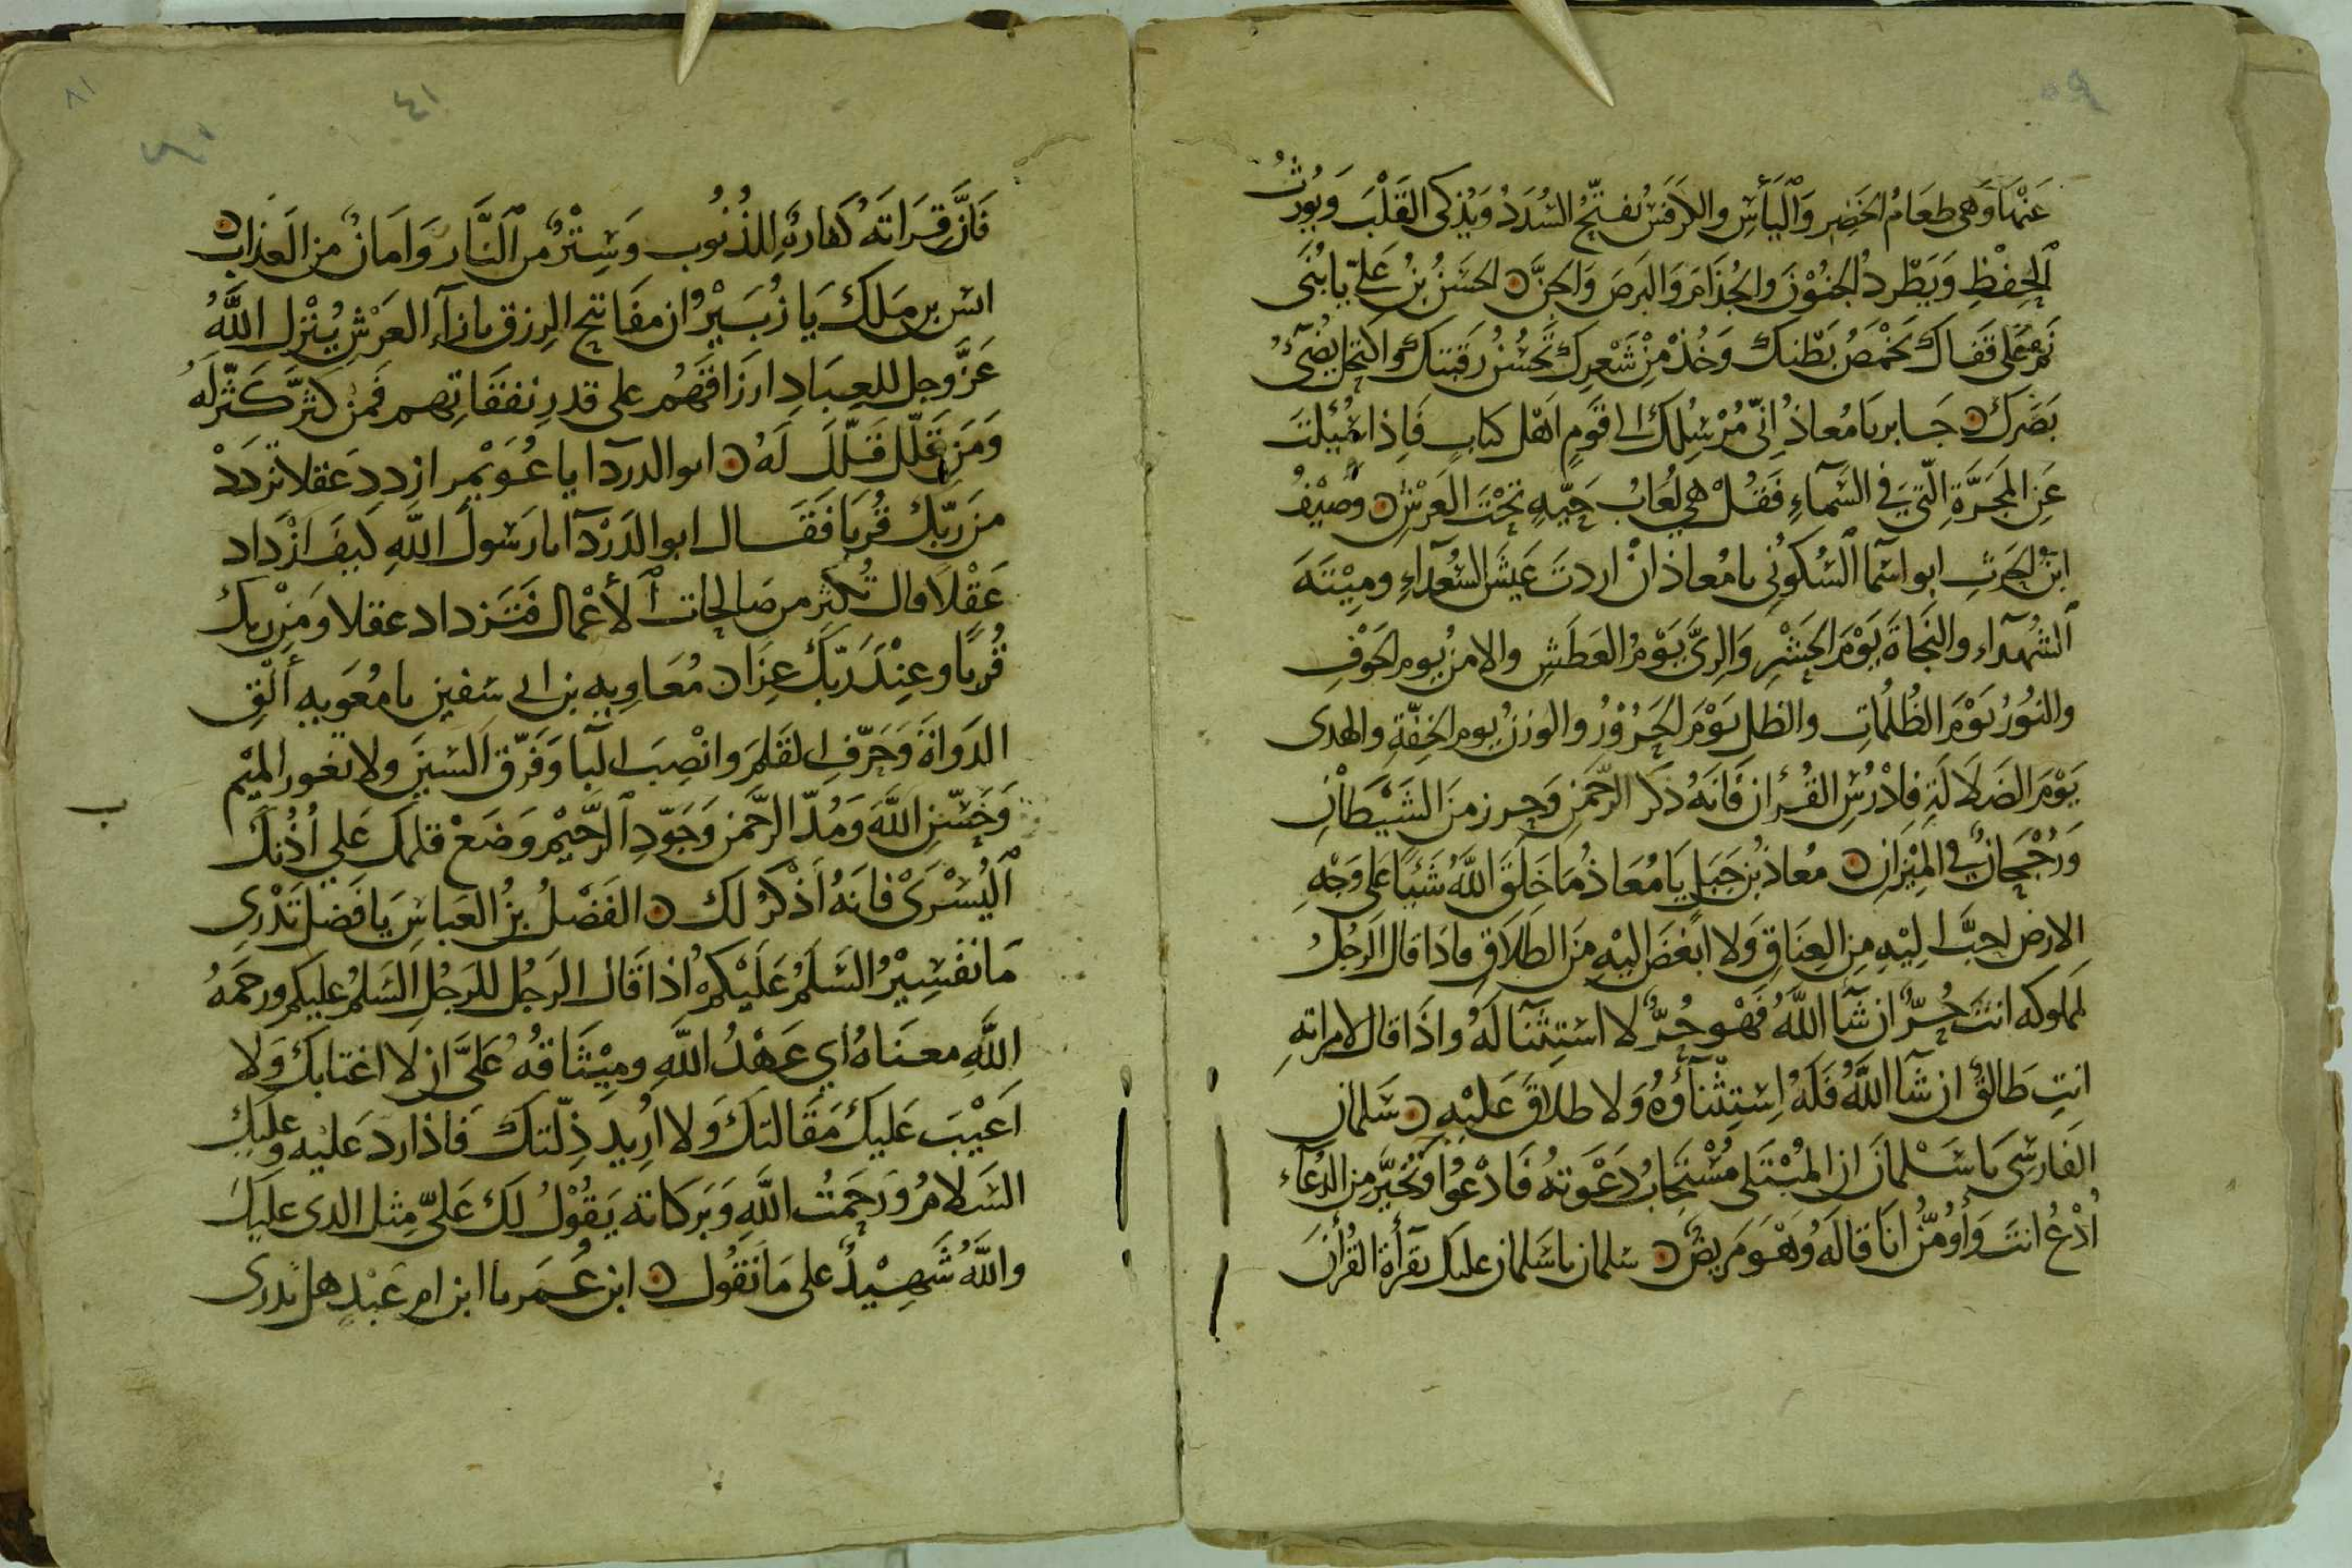 عَنْهَا وَهِيَ طعَامُ الخَضِر وَالْيَأسِ والكَرَفسُ يُفتِّحُ السُدَدُ وَيُذكى القَلْبَ وَيُورثُ
الحِفْظِ وَيَطْرد الجنُوْنَ وَالجُذَامَ وَالبَرصَ وَالجنَّ الحَسَنُ بْنُ عَلي يا بُنَى
نَمْ عَلى قَفَاكَ يَخْمَصُ بَطْنكَ وَخُذْ مِنْ شَعْرِكَ تَحْسُنُ رَقَبَتكَ واكتحل يُضِىُٔ
بَصَرك جَابر يَا مُعاذُ اِنّى مُرْسِلكَ الى قَوْمٍ اَهْل كتابٍ فَاِذا سُئِلتَ
عَنِ المَجَرَّةِ الّتي فى السَّمآءِ فَقُلْ هى لُعَابُ حَيّهٍ تحْتَ العَرْشِ وصَيْفُ
ابنُ الحرثِ ابو اسْما السَّكُوني يا مُعاذ انْ اردتَ عَيشَ السُّعدآءِ ومِيْتَهَ
الشُهدآء والنجَاةَ يَوْمَ الحَشْرِ وَالرِىَّ يَوْمُ العَطَشِ والامنُ يوم الخَوْفِ
والنوُرُ يَوْمَ الظُلُمَاتِ والظل يَوْمَ الحَرُوْرُ والوَزنُ يوم الخِفّةِ والهدى
يَوْمَ الضَلاَلَةِ فَادْرُسِ القُرأن فَانَهُ ذكرُ الرّحْمَنِ وَحِرز منَ الشَيْطَانِ
وَرُجْحَانٌ فى المِيْزَانِ مُعاذُ بْن جَبَل يَا مُعَاذ مَا خَلَقَ اللهُ شَئيًا عَلى وَجْهِ
الارض احبَّ اِليْهِ مِن العِتَاقِ وَلا ابغَضَ اليْهِ منَ الطلاَق فاذا قال الرجُلُ
لمملوكه انتَ حُرٌّ ان شآ اللهُ فَهْو حُرٌّ لا استِثنآ لهُ واذَا قال لامراتهِ
انتِ طَالقٌ ان شآ اللهُ فَلهُ اِستِثنآؤُهُ وَلا طلاقَ عَليْهِ سَلمان
الفَارسِى يَا سَلْمانَ ان المُبْتَلى مُسْتَجَابُ دَعْوتهُ فَادْعُوا وَتخَيَّر من الدُعآءِ
اُدْعُ انتَ وَأُومّنُ انَا قالَهُ وَهْوَ مَريضٌ سلمان يا سَلمان عليك بقرأة القُرأنَ
فَاَنَّ قِرَاتهُ كَفارةٌ لِلذُنُوب وَسِتْرٌ من النَّار وَامَانٌ من العَذابِ
انس بن مَلك يَا زُبَيْرُ ان مفَاتيح الرِزق بازآءِ العَرْشِ يُنْزل اللهُ
عَزَّ وَجل للعِبَادِ ارزَاقَهُمْ على قدر نفقَاتهم فَمَن كثّرَ كَثّرَ لَهُ
وَمَن قَلّلَ قَلّلَ لَهُ ابو الدردآ يا عُوَيْمِر ازددِ عَقلا تزدَدْ
من رَبّكَ قُربًا فقَالَ ابو الدَرْدآ يا رَسُولَ اللهِ كَيفَ ازْدَاد
عَقْلاً قال تُكثر من صَالحات الأعْمال فَتَزداد عقلا وَمِنْ ربك
قُربًا وعِنْدَ رَبّكَ عِزا مُعَاوِيه بن ابى سفين يا معَويه ألْقِ
الدَوَاةَ وَحَرّفِ القَلمَ وَانْصِبَ البآ وَفَرّق السّيَن ولا تعور الميْم
وَحَسّنِ اللهَ وَمُدّ الرحْمَن وَجَوّدِ الرَّحيْم وَضَعْ قلمك عَلي اُذُنكَ
اليُسْرَى فانَهُ أذْكَرُ لَكَ الفَضْلُ بنُ العَباسِ يَا فَضلُ تَدْرِى
مَا تفسِيْرُ السَّلَمُ عَلَيْكمْ اذا قَالَ الرَجُل للرَجُل السَّلَمُ عليكم ورحمَهُ
اللهِ معنَاهُ أي عَهْدُ اللهِ ومِيْثَاقُهُ عَلىَّ ان لاَ اغتابك وَلا
اَعَيْبَ عَليكَ مَقالتكَ وَلا اُريد ذِلّتكَ فَاذا رد عَليه وَعَليكَ
السَلامُ وَرحمَتُ اللهِ وَبَركاته يَقُوْلُ لكَ عَليّ مِثل الدى عليكَ
واللهُ شَهِيْدٌ على مَا نَقُول ابن عُمَر يا ابن ام عَبْدٍ هل تدرى
ب
٤١
٨١